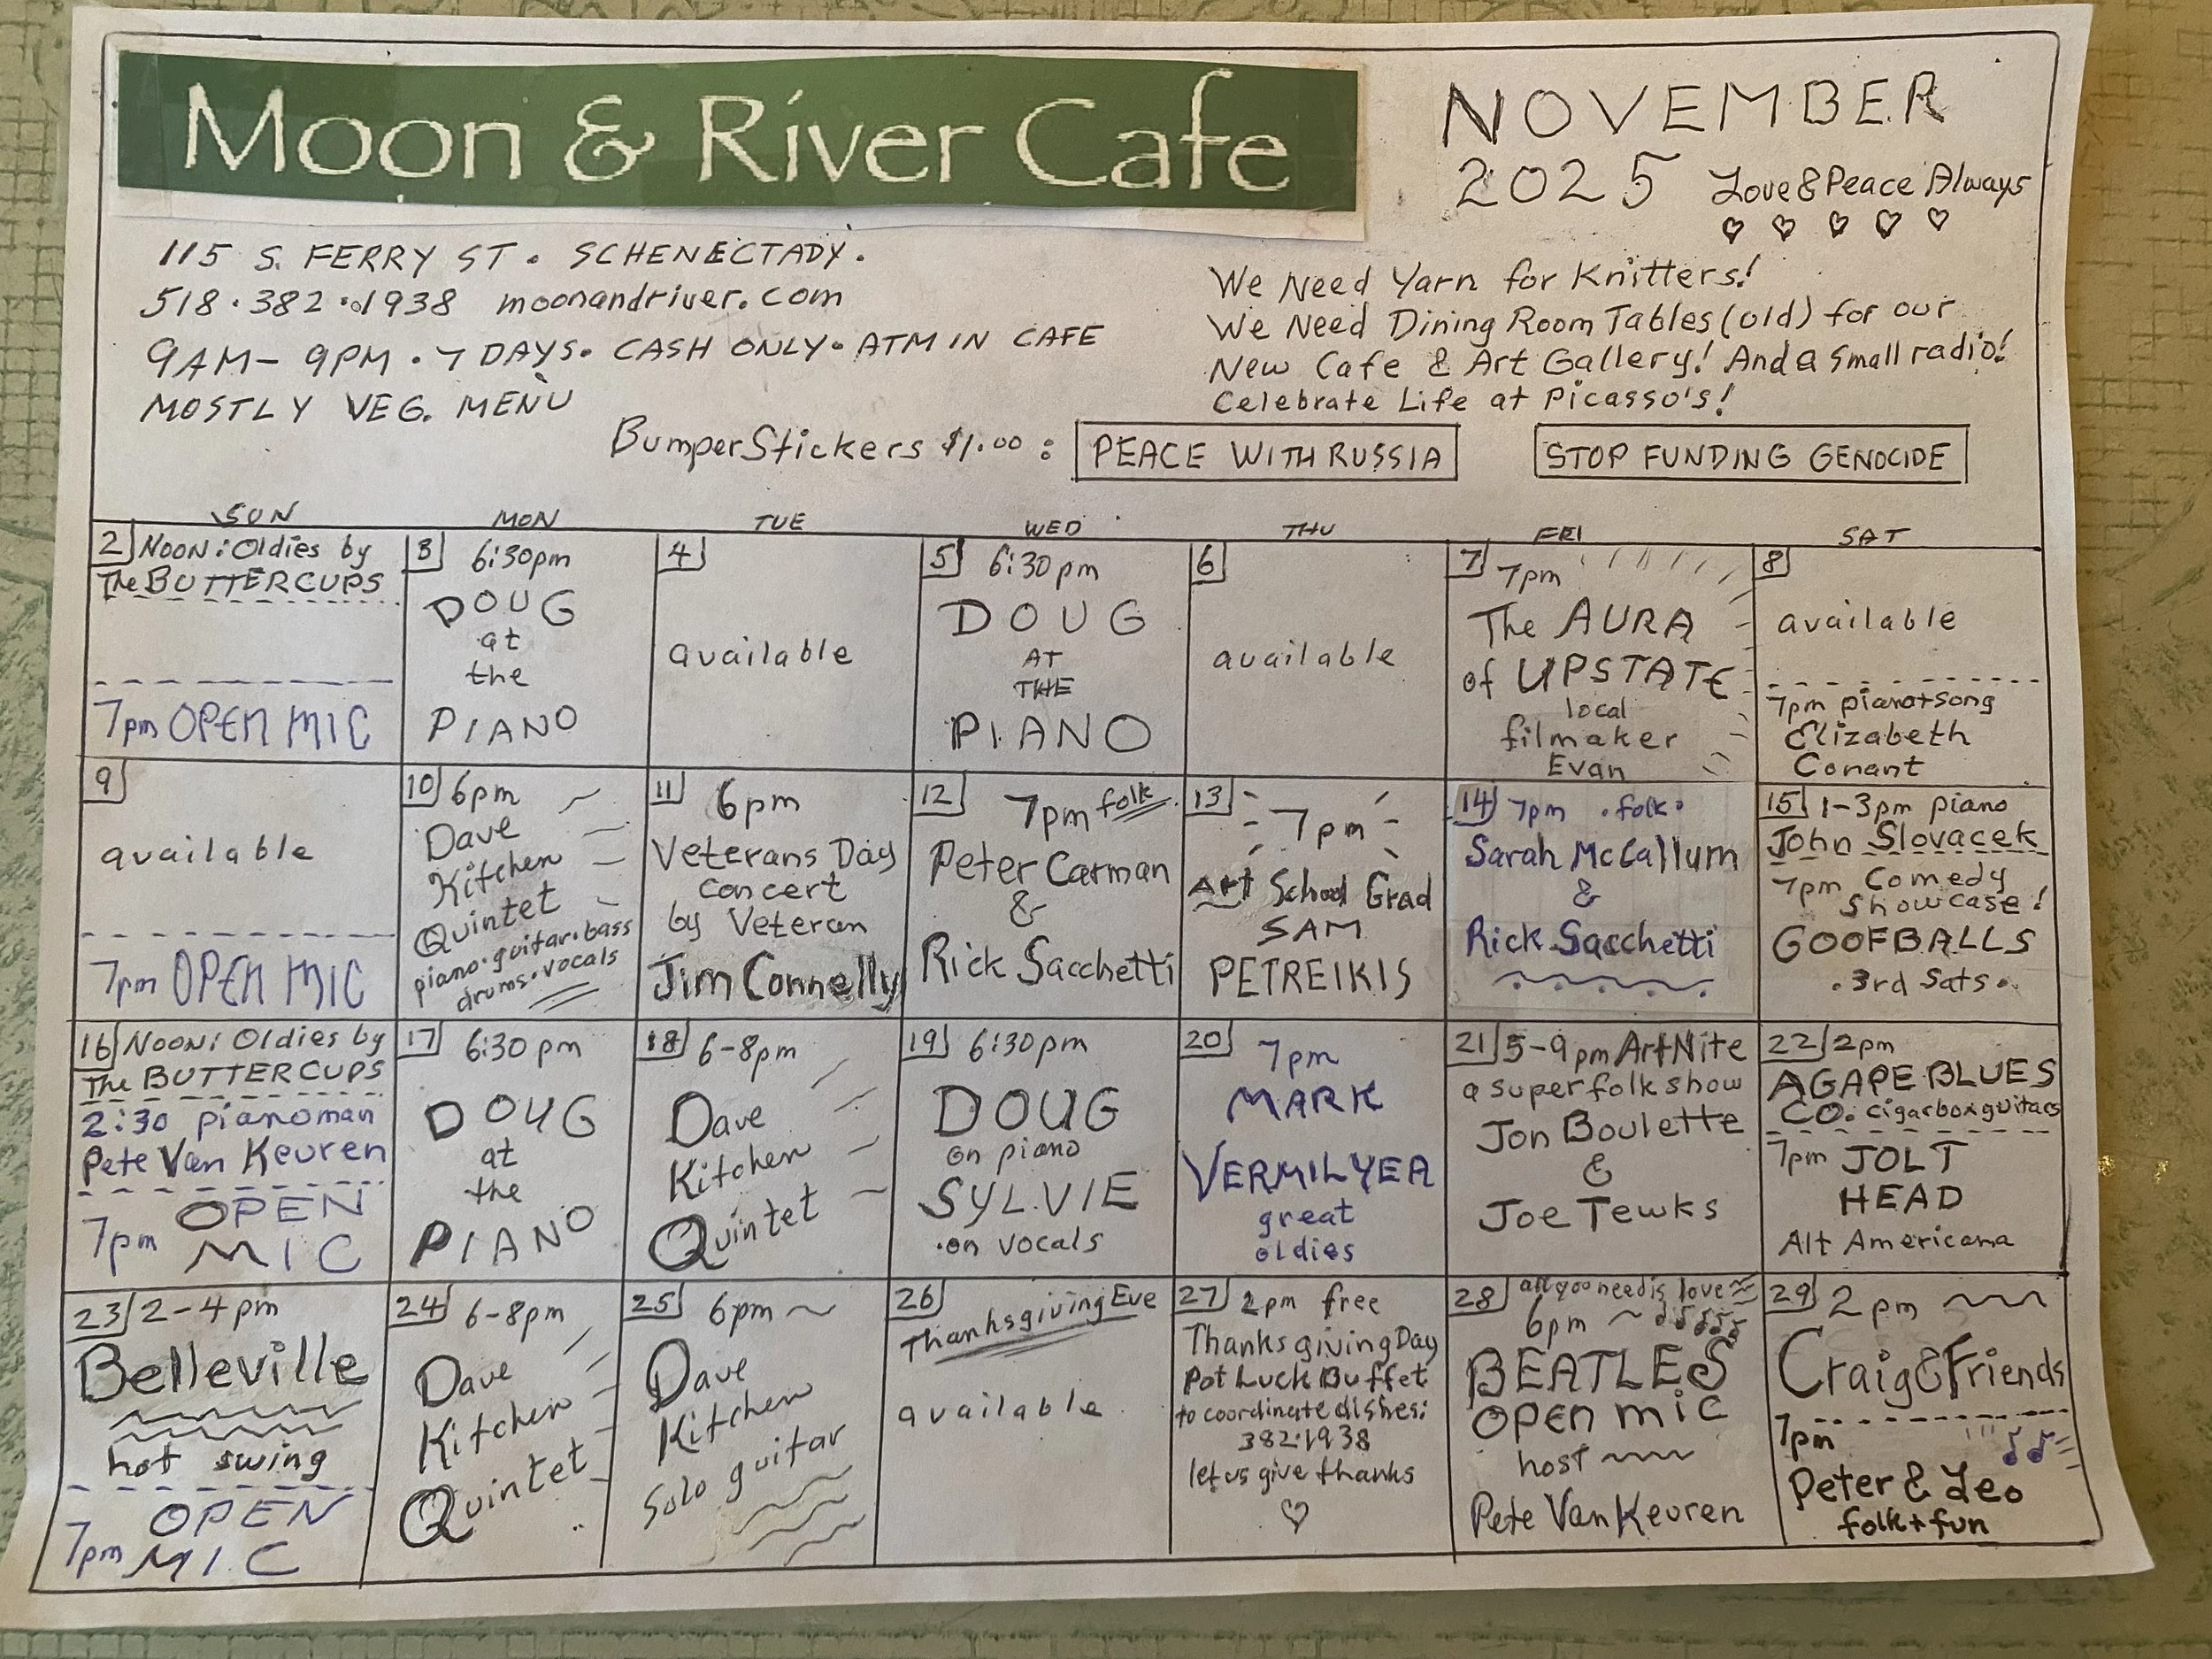 Moon & River Cafe
NOVEMBER
2025 Love & Peace Always
115 S. FERRY ST. SCHENECTADY.
518.382.1938 moonandriver.com
9AM-9PM. 7 DAYS. CASH ONLY. ATM IN CAFE
MOSTLY VEG. MENU
We Need Yarn for Knitters!
We Need Dining Room Tables (old) for our
New Cafe & Art Gallery! And a small radio!
Celebrate Life at Picasso's!
BumperStickers $1.00: PEACE WITH RUSSIA STOP FUNDING GENOCIDE
SUN MON TUE WED THU FRI SAT
2 NOON: Oldies by
The BUTTERCUPS
7pm OPEN MIC
3 6:30pm
DOUG
at
the
PIANO
4
available
5 6:30pm
DOUG
AT
THE
PIANO
6
available
7 7pm
The AURA
of UPSTATE
local
filmaker
Evan
8
available
7pm piano+song
Elizabeth
Conant
9
available
7pm OPEN MIC
10 6pm
Dave
Kitchen
Quintet
piano.guitar.bass
drums.vocals
11 6pm
Veterans Day
concert
by Veteran
Jim Connelly
12 7pm folk
Peter Carman
&
Rick Sacchetti
13 7pm
Art School Grad
SAM
PETREIKIS
14 7pm .folk.
Sarah McCallum
&
Rick Sacchetti
15 1-3pm piano
John Slovacek
7pm Comedy
Showcase!
GOOFBALLS
.3rd Sats.
16 NOON: Oldies by
The BUTTERCUPS
2:30 pianoman
Pete Van Keuren
7pm OPEN
MIC
17 6:30pm
DOUG
at
the
PIANO
18 6-8pm
Dave
Kitchen
Quintet
19 6:30pm
DOUG
on piano
SYLVIE
.on vocals
20 7pm
MARK
VERMILYEA
great
oldies
21 5-9pm ArtNite
a super folk show
Jon Boulette
&
Joe Tewks
22 2pm
AGAPE BLUES
CO. cigarboxguitars
7pm JOLT
HEAD
Alt Americana
23 2-4pm
Belleville
hot swing
7pm OPEN
MIC
24 6-8pm
Dave
Kitchen
Quintet
25 6pm
Dave
Kitchen
Solo guitar
26 Thanksgiving Eve
available
27 2pm free
Thanksgiving Day
Pot Luck Buffet
to coordinate dishes:
382.1938
let us give thanks
28 all you need is love
6pm
BEATLES
OPEN MIC
host
Pete Van Keuren
29 2pm
Craig & Friends
7pm
Peter & Leo
folk + fun